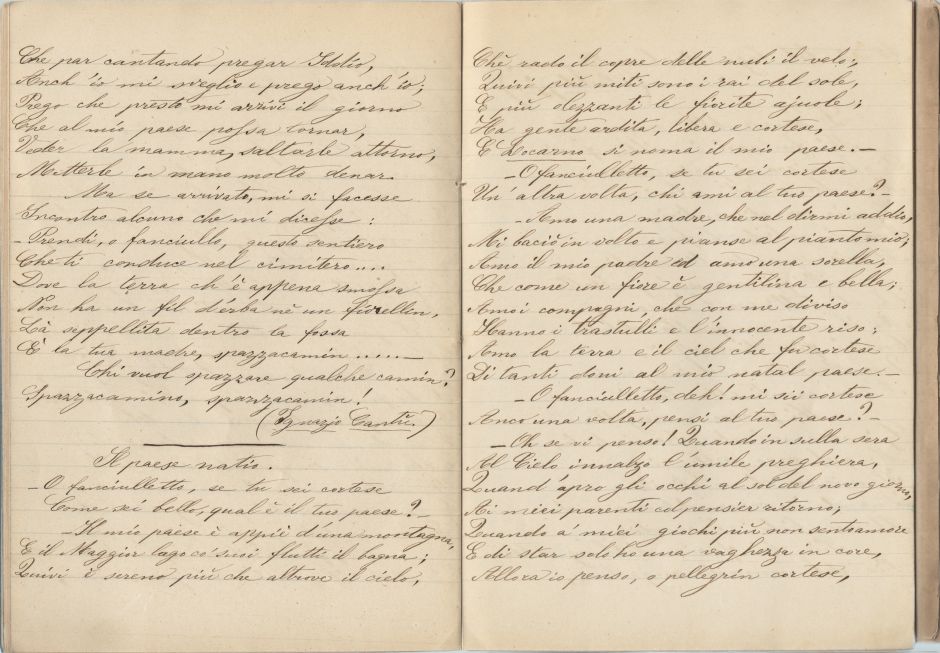 Che par cantando pregar Iddio,
Anch'io mi sveglio e prego anch'io;
Prego che presto mi arrivi il giorno
Che al mio paese possa tornar,
Veder la mamma, saltarle attorno,
Metterle in mano molto denar.
Ma se arrivato, mi si facesse
Incontro alcuno che mi dicesse:
- Prendi, o fanciullo, questo sentiero
Che ti conduce nel cimitero....
Dove la terra ch'è appena smossa
Non ha un fil d'erba nè un fiorellin,
Là seppellita dentro la fossa
È la tua madre, spazzacamin ..... -
Chi vuol spazzare qualche camin?
Spazzacamino, spazzacamin!
(Ignazio Cantù.)
Il paese natio.
- O fanciulletto, se tu sei cortese
Come sei bello, qual è il tuo paese? -
- Il mio paese è appiè d'una montagna,
E il Maggior lago co' suoi flutti il bagna;
Quivi è sereno più che altrove il cielo,
Chè rado il copre delle nubi il velo;
Quivi più miti sono i rai del sole,
E più olezzanti le fiorite ajuole;
Ha gente ardita, libera e cortese,
E Locarno si noma il mio paese. -
- O fanciulletto, se tu sei cortese
Un'altra volta, chi ami al tuo paese? -
- Amo una madre, che nel dirmi addio,
Mi baciò in volto e pianse al pianto mio;
Amo il mio padre ed amo una sorella,
Che come un fiore è gentilina e bella;
Amo i compagni, che con me diviso
Hanno i trastulli e l'innocente riso;
Amo la terra e il ciel che fu cortese
Di tanti doni al mio natal paese. -
- O fanciulletto, deh! mi sii cortese
Anco una volta, pensi al tuo paese? -
- Oh se vi penso! Quando in sulla sera
Al Cielo innalzo l'umile preghiera,
Quand'apro gli occhi al sol del novo giorno,
Ai miei parenti col pensier ritorno;
Quando a' miei giochi più non sento amore
E di star solo ho una vaghezza in core,
Allora io penso, o pellegrin cortese,